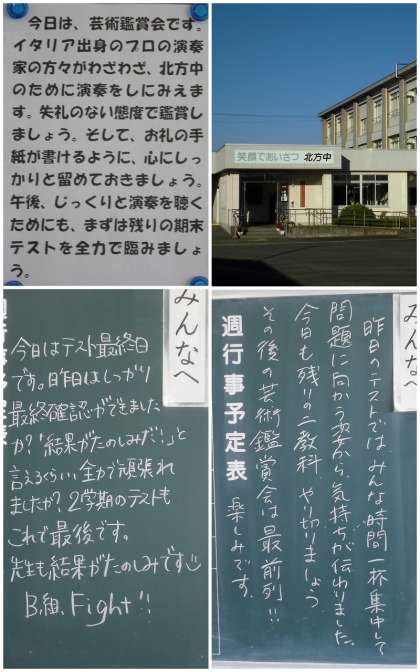 今日は、芸術鑑賞会です。
イタリア出身のプロの演奏
家の方々がわざわざ、北方中
のために演奏をしにみえま
す。失礼のない態度で鑑賞し
ましょう。そして、お礼の手
紙が書けるように、心にしっ
かりと留めておきましょう。
午後、じっくりと演奏を聴く
ためにも、まずは残りの期末
テストを全力で臨みましょ
う。
笑顔であいさつ 北方中
みんなへ
今日はテスト最終日
です。昨日はしっかり
最終確認ができました
か?「結果がたのしみだ!」と
言えるくらい全力で頑張れ
ましたか?2学期のテストも
これで最後です。
先生も結果がたのしみです
B組、Fight!!
みんな
昨日のテストでは みんな時間一杯集中して
問題に向かう姿から、気持ちが伝わりました。
今日も残りの二教科 やり切りましょう
その後の芸術鑑賞会は最前列!!
楽しみです。
週行事予定表